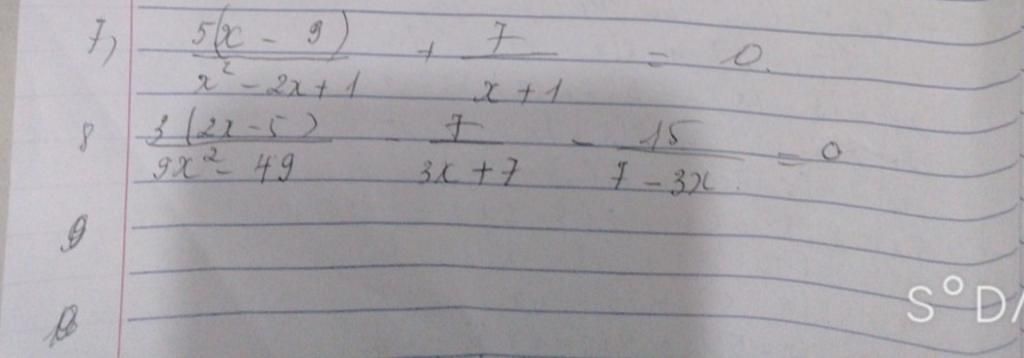 7) 5(x - 9) / x² - 2x + 1 + 7 / x + 1 = 0
8 3(2x - 5) / 9x² - 49 - 7 / 3x + 7 - 15 / 7 - 3x = 0
9
S°DA